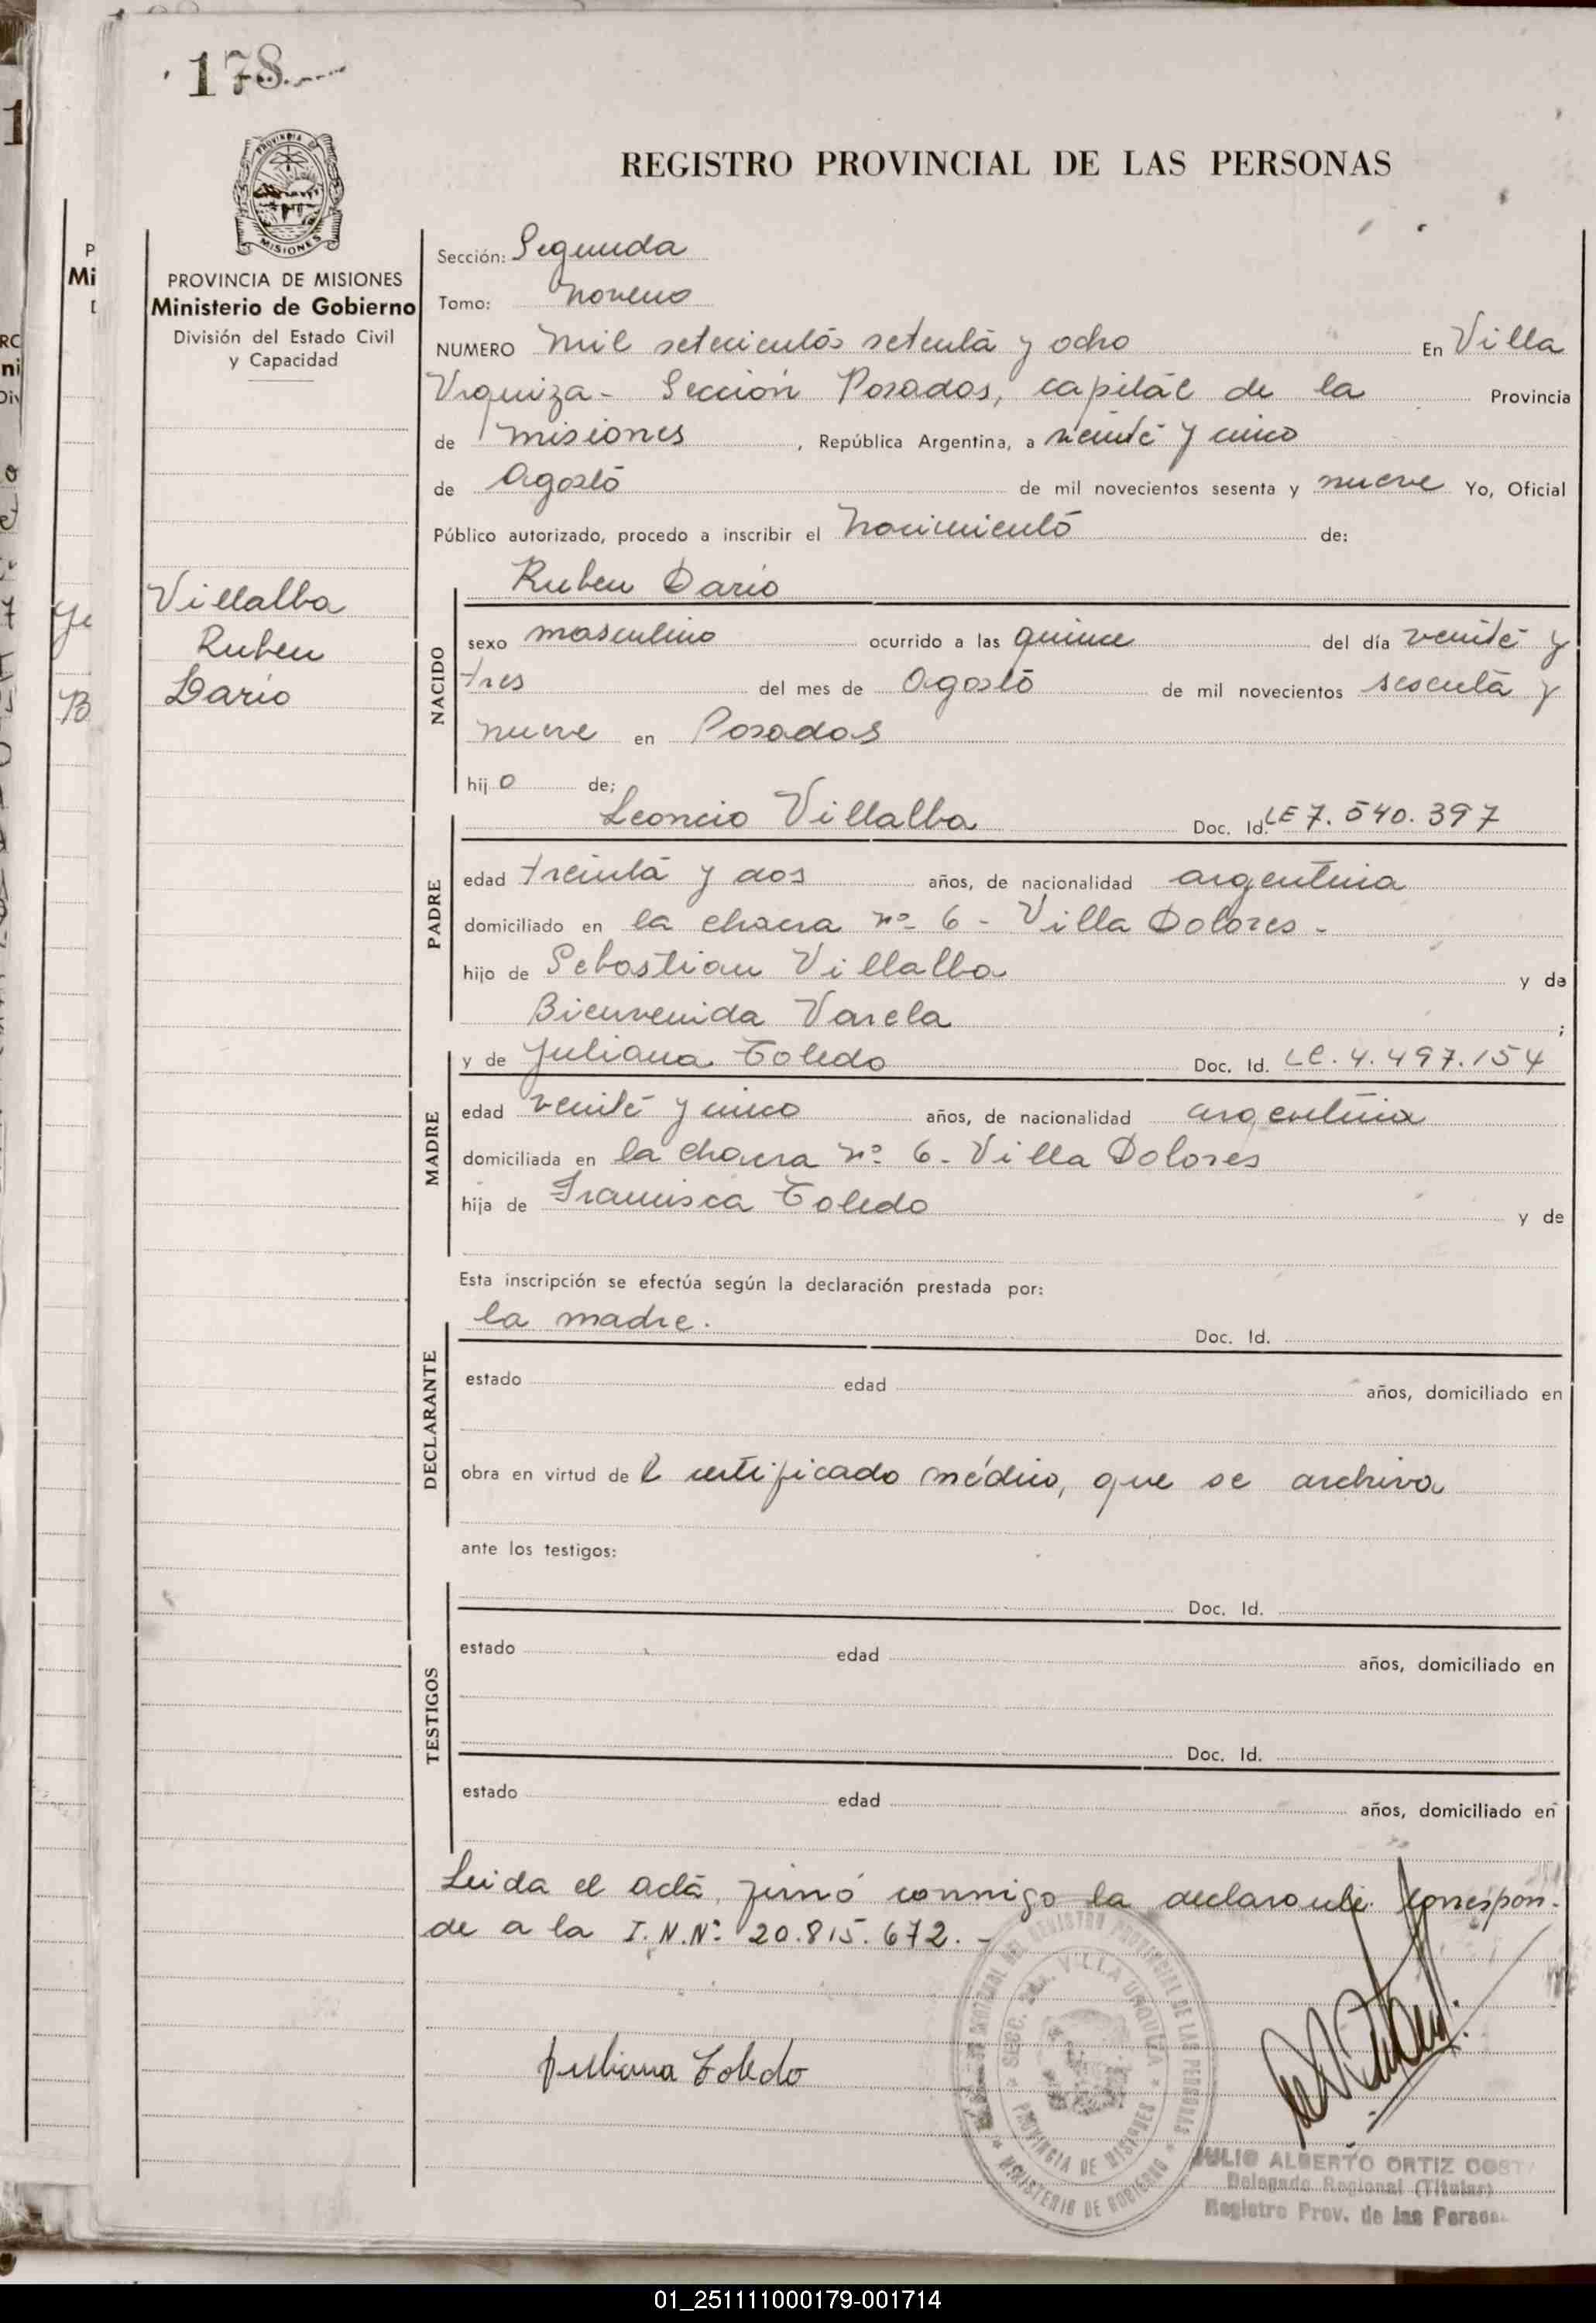 178
PROVINCIA DE
MISIONES
PROVINCIA DE MISIONES
Ministerio de Gobierno
División del Estado Civil
y Capacidad
Villalba
Ruben
Dario
REGISTRO PROVINCIAL DE LAS PERSONAS
Sección: Segunda
Tomo: Noveno
NUMERO Mil setecientos setenta y ocho En Villa
Urquiza - Sección Posadas, capital de la Provincia
de Misiones, República Argentina, a veinte y cinco
de Agosto de mil novecientos sesenta y nueve Yo, Oficial
Público autorizado, procedo a inscribir el Nacimiento de:
Ruben Dario
NACIDO
sexo masculino ocurrido a las quince del día veinte y
tres del mes de Agosto de mil novecientos sesenta y
nueve en Posadas
hij o de;
Leoncio Villalba Doc. Id. LE 7.540.397
PADRE
edad treinta y dos años, de nacionalidad argentina
domiciliado en la chacra nº 6 - Villa Dolores -
hijo de Sebastian Villalba y de
Bienvenida Varela ;
y de Juliana Toledo Doc. Id. LC. 4.497.154
MADRE
edad veinte y cinco años, de nacionalidad argentina
domiciliada en la chacra nº 6 - Villa Dolores
hija de Francisca Toledo y de
Esta inscripción se efectúa según la declaración prestada por:
la madre. Doc. Id.
DECLARANTE
estado edad años, domiciliado en
obra en virtud de l certificado médico, que se archiva
ante los testigos:
Doc. Id.
TESTIGOS
estado edad años, domiciliado en
Doc. Id.
estado edad años, domiciliado en
Leida el acta, firmó conmigo la declarante. Correspon-
de a la I.N.Nº 20.815.672. -
Juliana Toledo
REGISTRO PROVINCIAL DE LAS PERSONAS
SECC. 2da. VILLA URQUIZA
PROVINCIA DE MISIONES
MINISTERIO DE GOBIERNO
JULIO ALBERTO ORTIZ COSTA
Delegado Regional (Titular)
Registro Prov. de las Personas
01_251111000179-001714